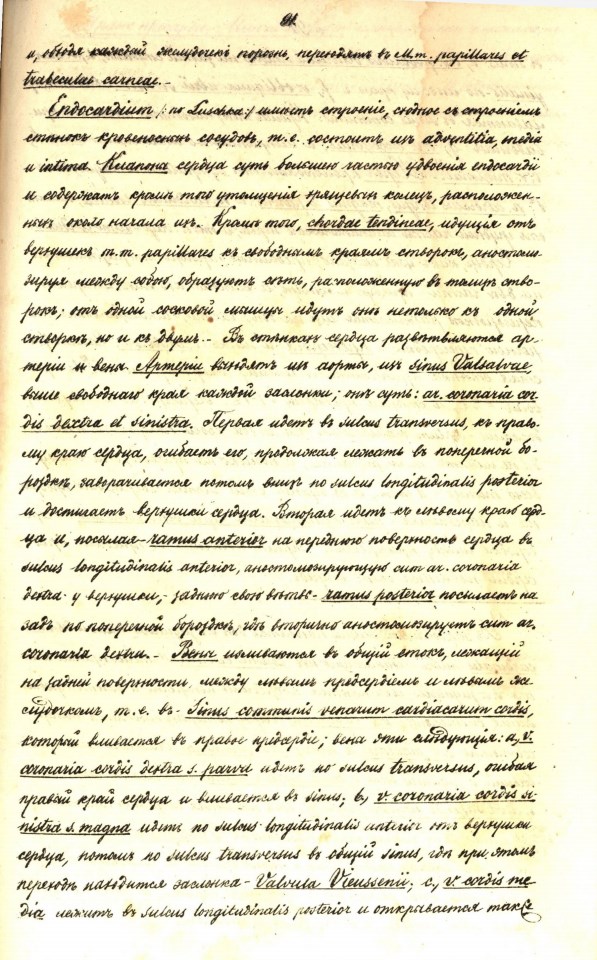 91.
и, обходя каждый желудочекъ порознь, переходятъ въ M.m. papillares et
trabeculae carneae. –
Endocardium /: по Luschka :/ имѣетъ строеніе, сходное съ строеніемъ
стѣнокъ кровеносныхъ сосудовъ, т.е. состоитъ изъ adventitia, media
и intima. Клапаны сердца суть большею частью удвоенія ендокардіи
и содержатъ кромѣ того утолщенія хрящевыхъ колецъ, расположен-
ныхъ около начала ихъ. Кромѣ того, chordae tendineae, идущія отъ
верхушекъ m.m. papillares къ свободнымъ краямъ створокъ, анастомо-
зируя между собою, образуютъ сѣть, расположенную въ толщѣ ство-
рокъ; отъ одной сосковой мышцы идутъ онѣ нетолько къ одной
створкѣ, но и къ двумъ. – Въ стѣнкахъ сердца развѣтвляются ар-
теріи и вены. Артеріи выходятъ изъ аорты, изъ sinus Valsalvae,
выше свободнаго края каждой заслонки; онѣ суть: ar. coronaria cor-
dis dextra et sinistra. Первая идетъ въ sulcus transversus, къ право-
му краю сердца, огибаетъ его, продолжая лежать въ поперечной бо-
роздкѣ, заворачивается потомъ внизъ по sulcus longitudinalis posterior
и достигаетъ верхушки сердца. Вторая идетъ къ лѣвому краю серд-
ца и, посылая ramus anterior на переднюю поверхность сердца въ
sulcus longitudinalis anterior, анастомозирующую cum ar. coronaria
dextra у верхушки, – заднюю свою вѣтвь – ramus posterior посылаетъ на
задъ по поперечной бороздкѣ, гдѣ вторично анастомизируетъ cum ar.
coronaria dextra. – Вены изливаются въ общій стокъ, лежащій
на задней поверхности между лѣвымъ предсердіемъ и лѣвымъ же-
лудочкомъ, т.е. въ – Sinus communis venarum cardiacarum cordis,
который вливается въ правое предсердіе; вены эти слѣдующія: a, v.
coronaria cordis dextra s. parva идетъ по sulcus transversus, огибая
правый край сердца и вливается въ sinus; b, v. coronaria cordis si-
nistra s. magna идетъ по sulcus longitudinalis anterior отъ верхушки
сердца, потомъ по sulcus transversus въ общій sinus, гдѣ при этомъ
переходѣ находится заслонка – Valvula Vieussenii; c, v. cordis me-
dia лежитъ въ sulcus longitudinalis posterior и открывается также